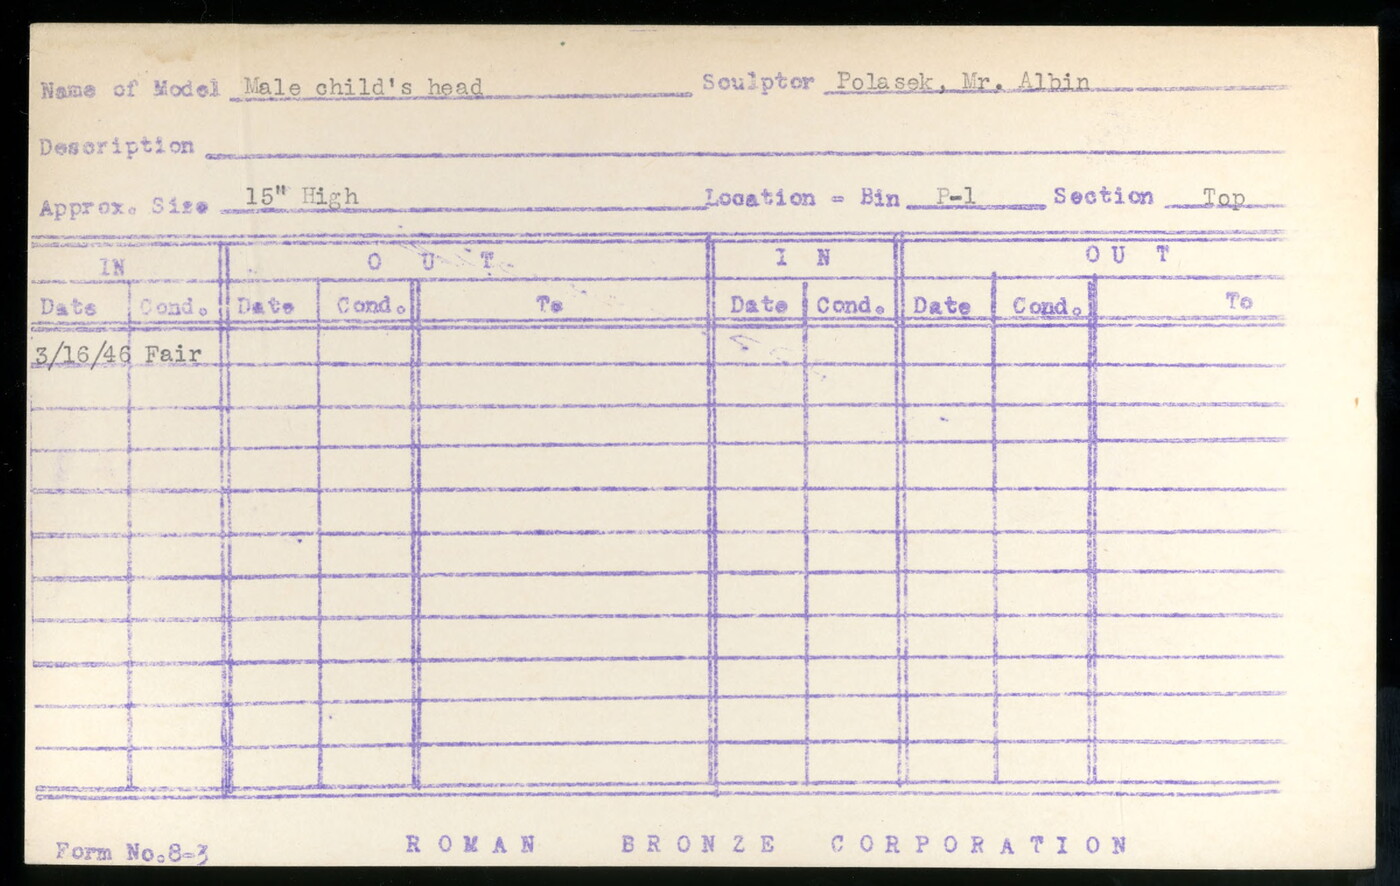 Name of Model Male child's head Sculptor Polasek, Mr. Albin
Description
Approx. Size 15" High Location = Bin P-1 Section Top
IN O U T I N O U T
Date Cond. Date Cond. To Date Cond. Date Cond. To
3/16/46 Fair
Form No.8=3 ROMAN BRONZE CORPORATION